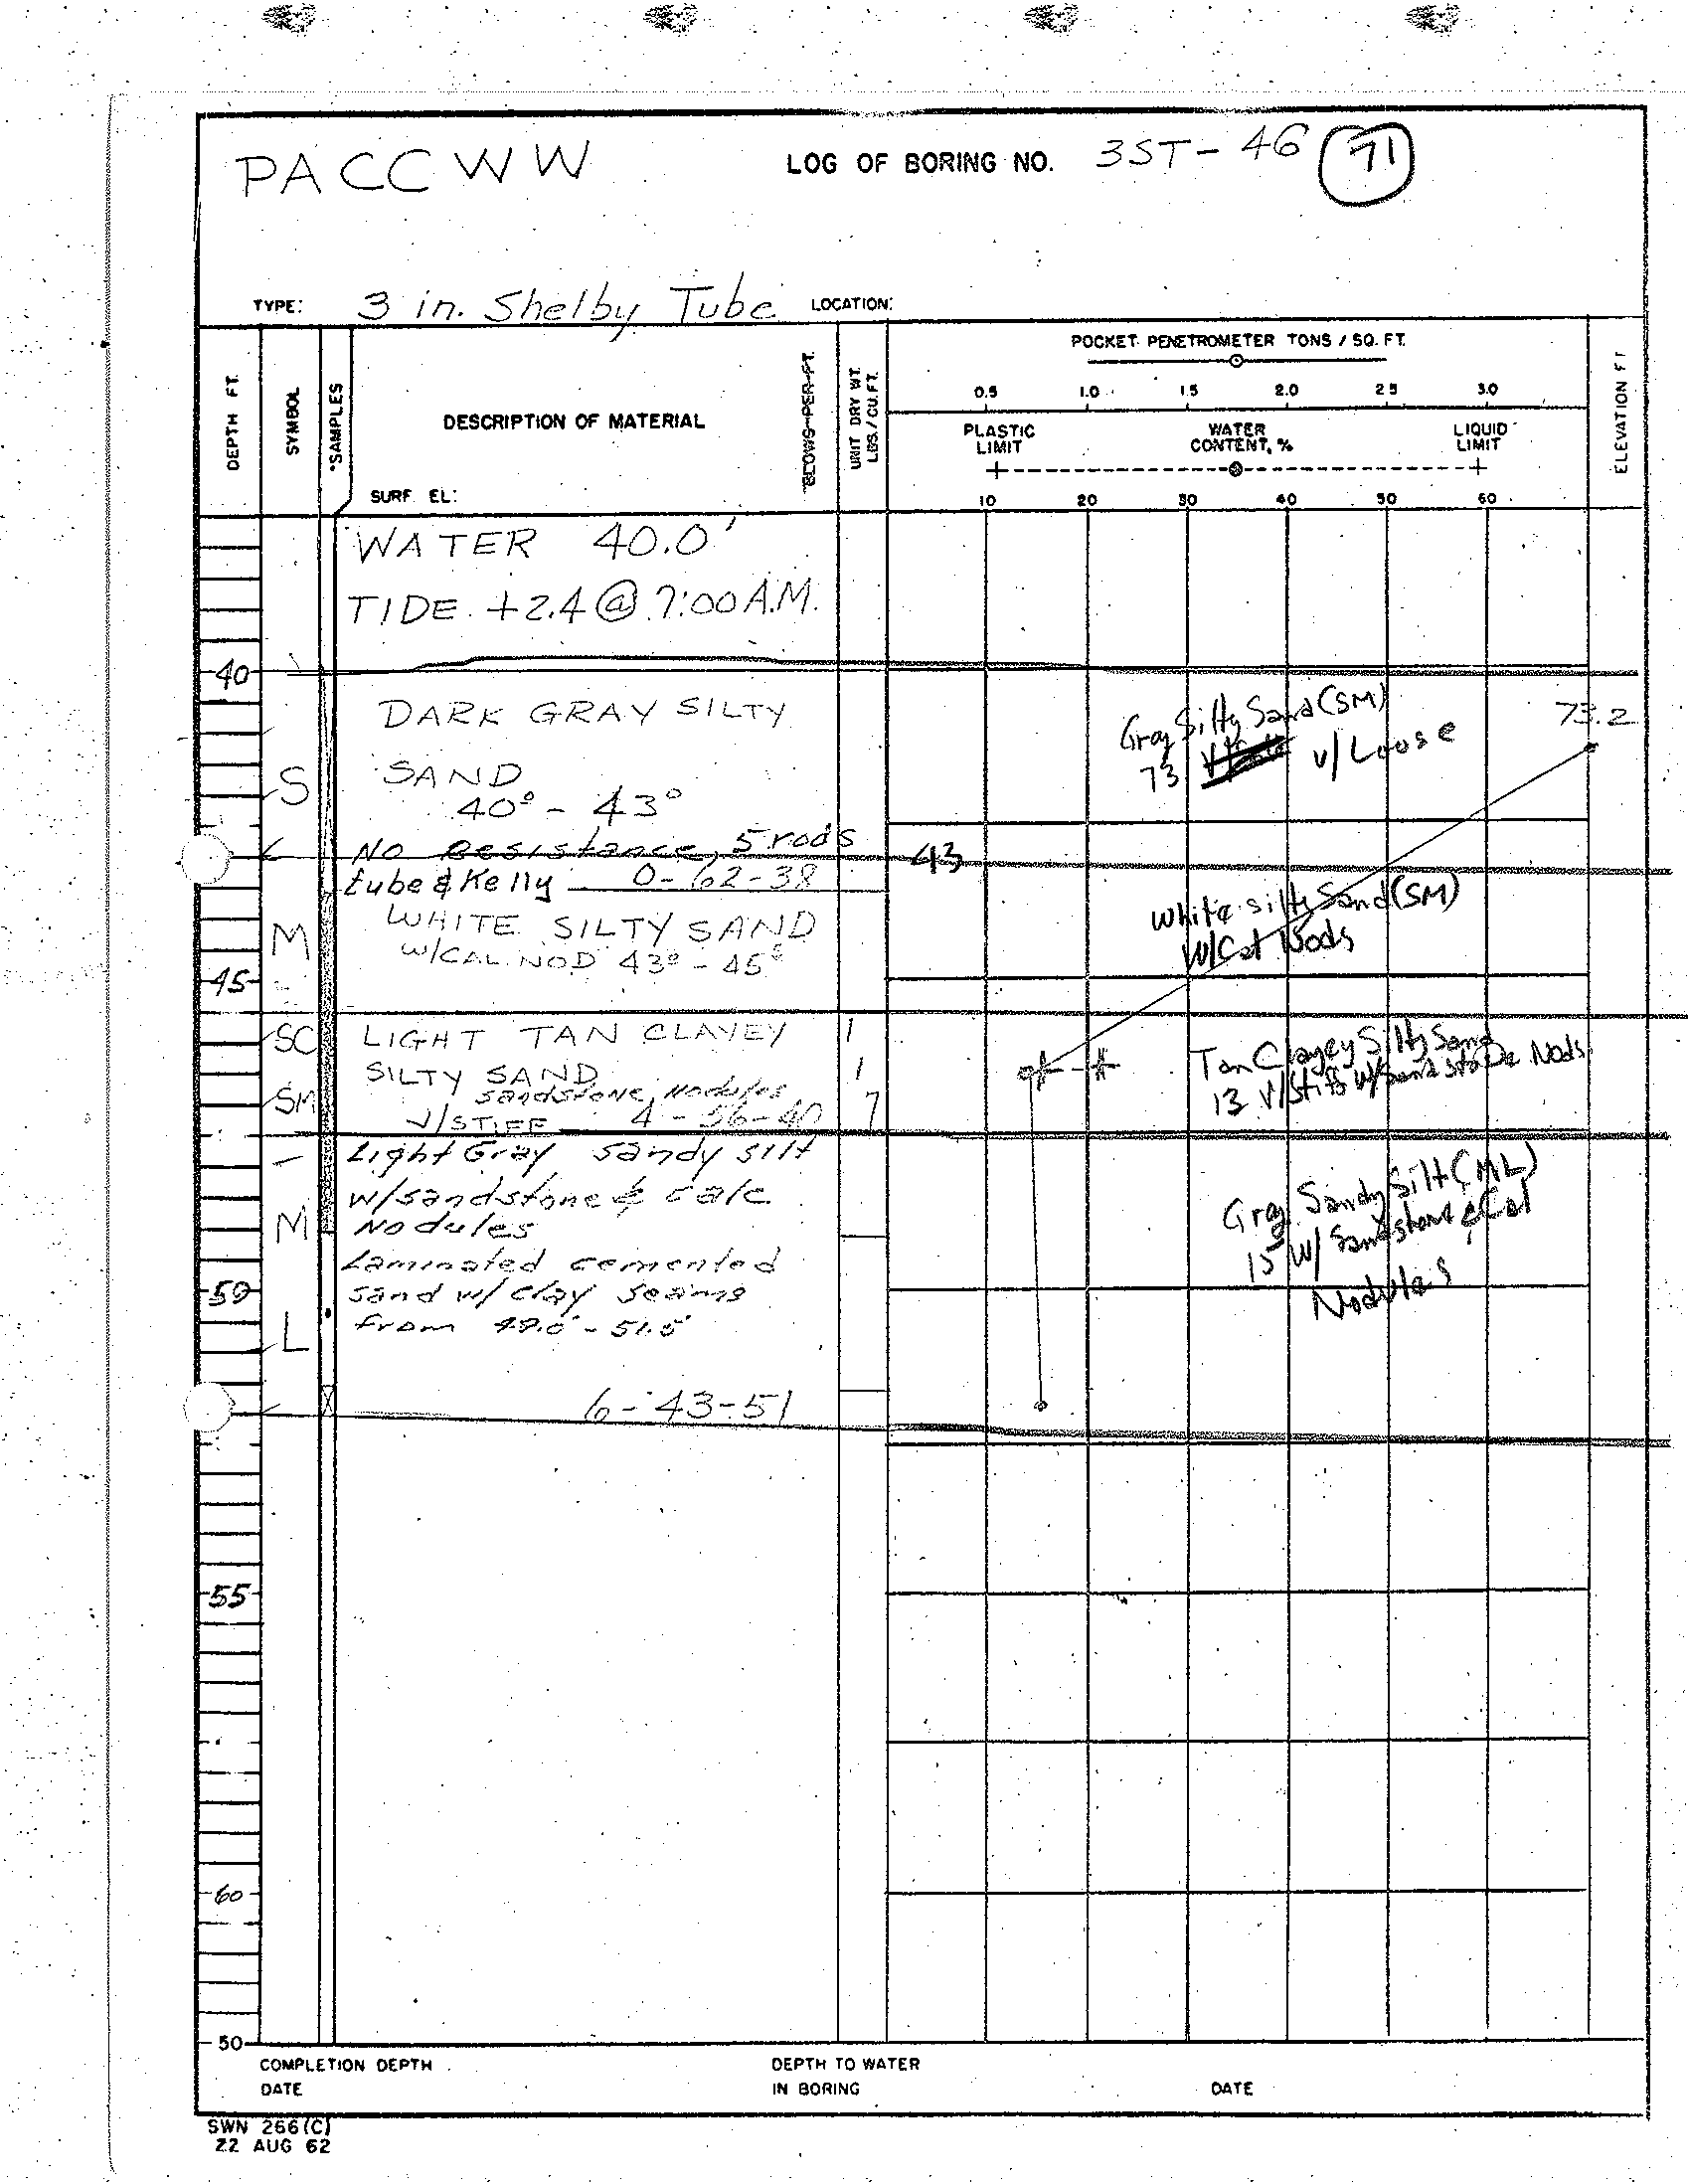 PACCWW
LOG OF BORING NO. 3ST-46 71
TYPE: 3 in. Shelby Tube LOCATION:
DEPTH FT.
SYMBOL
SAMPLES
DESCRIPTION OF MATERIAL
SURF. EL:
BLOWS PER FT.
UNIT DRY WT. LBS./CU.FT.
POCKET PENETROMETER TONS / SQ. FT.
0.5 1.0 1.5 2.0 2.5 3.0
PLASTIC LIMIT
WATER CONTENT, %
LIQUID LIMIT
10 20 30 40 50 60
ELEVATION FT
WATER 40.0'
TIDE +2.4 @ 7:00 A.M.
40
DARK GRAY SILTY
SAND
40° - 43°
Gray Silty Sand (SM)
73 v/Loose
73.2
S
No Resistance, 5 rods
tube & Kelly 0-62-38
43
WHITE SILTY SAND
W/CAL. NOD 43° - 45
White silty Sand (SM)
W/Cal Nods
M
45
SC
LIGHT TAN CLAYEY
SILTY SAND
sandstone Nodules
SM
V/STIFF 4-56-40
1
1
7
Tan Clayey Silty Sand
13 V/Stiff w/Sandstone Nods
Light Gray sandy silt
w/sandstone & calc
Nodules
M
Laminated cemented
sand w/ clay seams
from 49.0' - 51.5'
Gray Sandy Silt (ML)
15 W/ Sandstone & Cal
Nodules
50
L
6-43-51
55
60
50
COMPLETION DEPTH
DATE
DEPTH TO WATER
IN BORING
DATE
SWN 266(C)
22 AUG 62